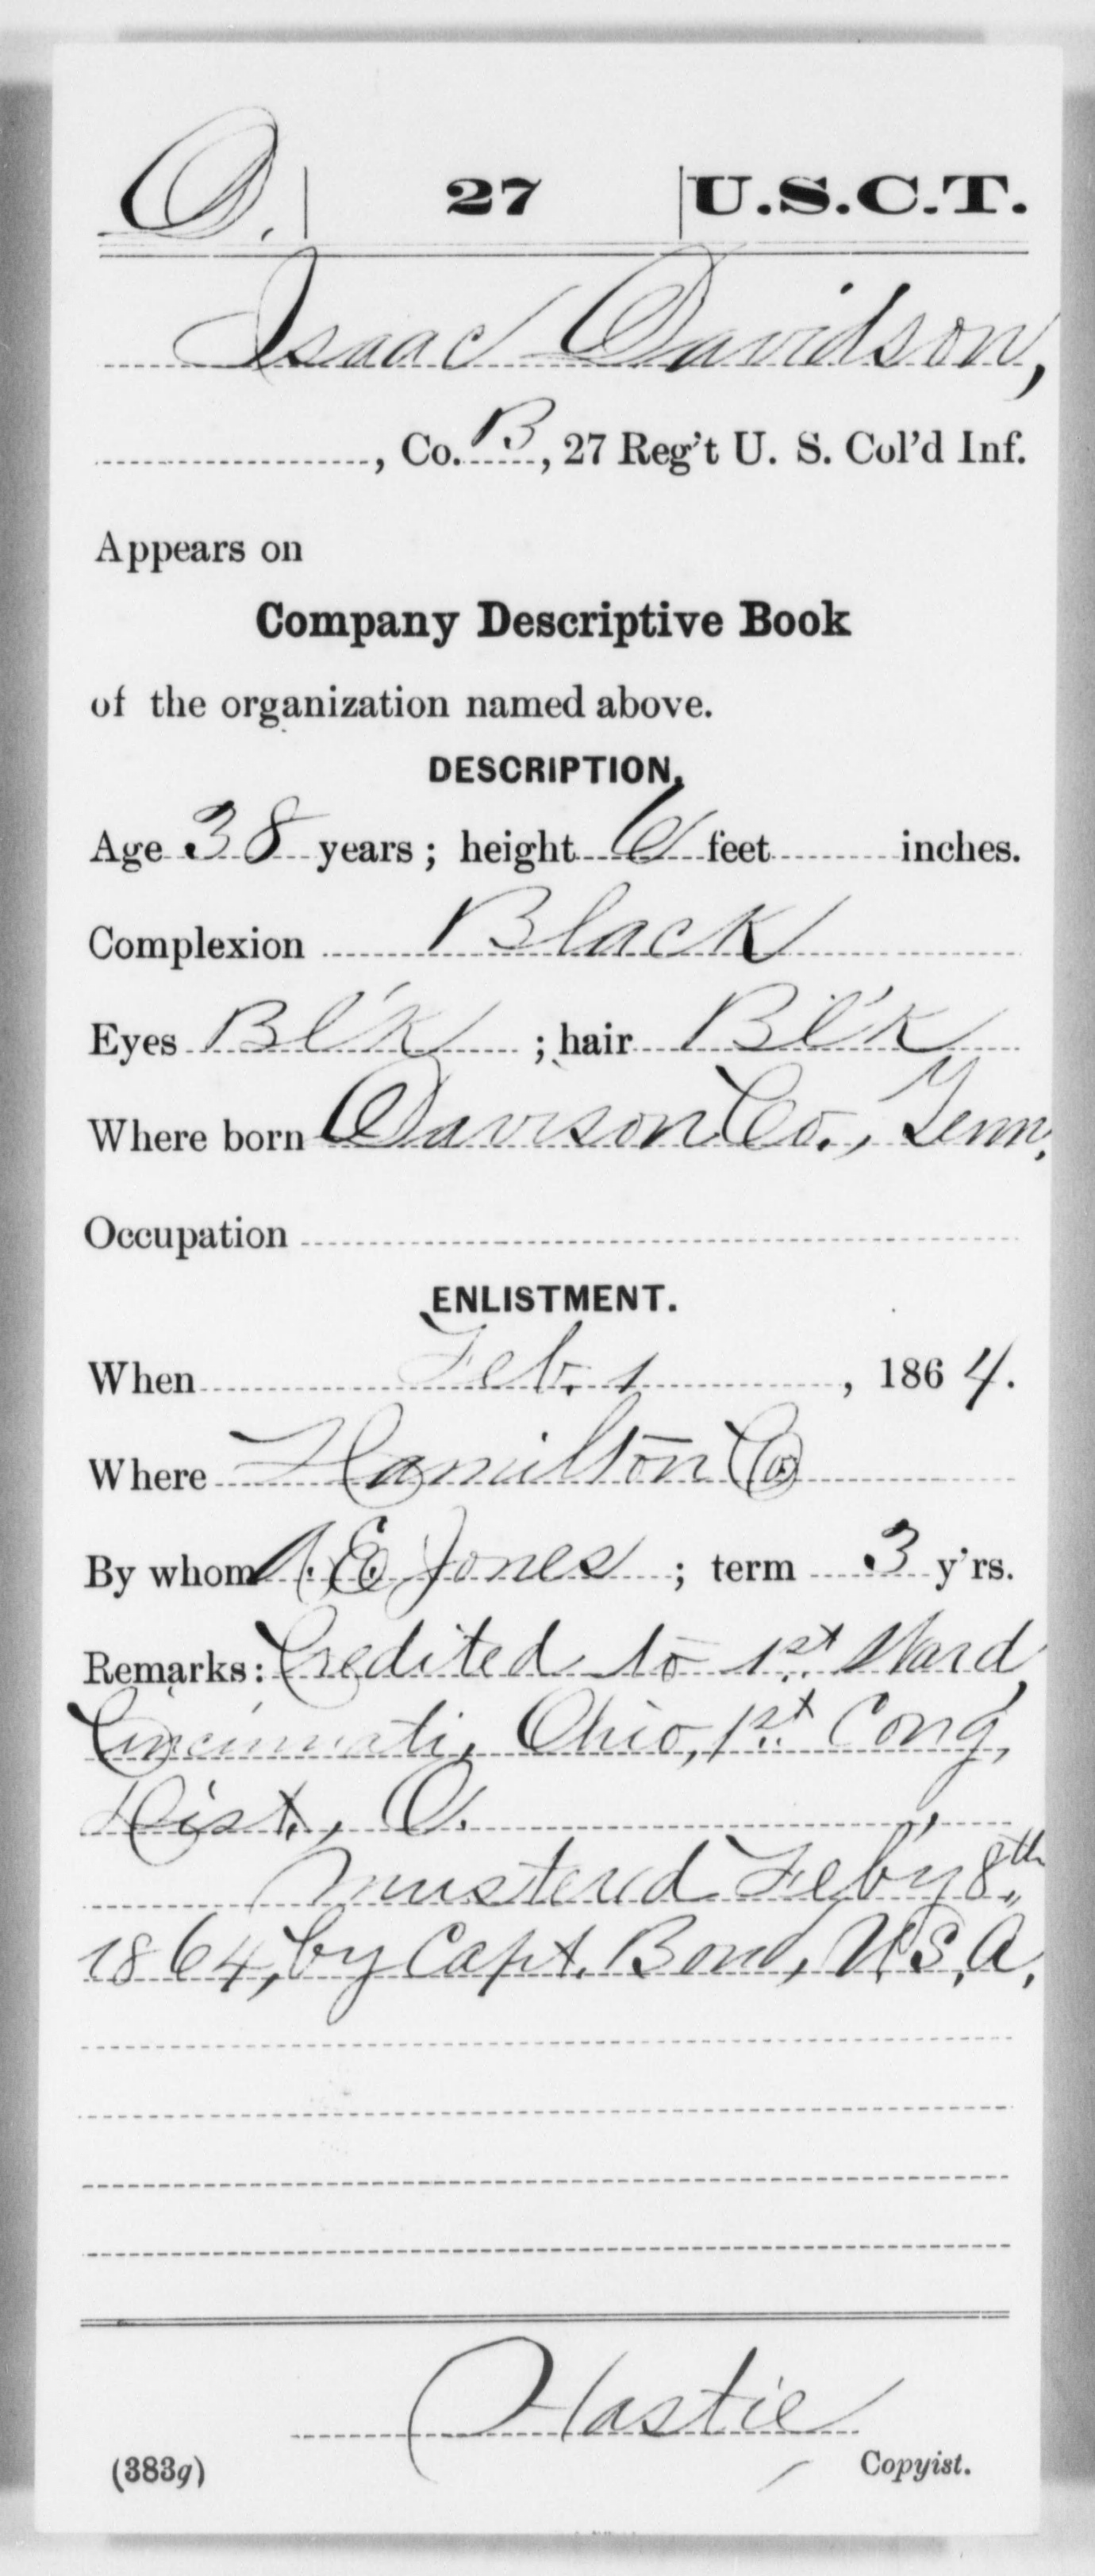 D. | 27 | U.S.C.T.
Isaac Davidson,
, Co. B, 27 Reg't U. S. Col'd Inf.
Appears on
Company Descriptive Book
of the organization named above.
DESCRIPTION.
Age 38 years; height 6 feet inches.
Complexion Black
Eyes Bl'k ; hair Bl'k
Where born Davison Co., Tenn.
Occupation
ENLISTMENT.
When Feb. 1, 1864.
Where Hamilton Co
By whom A. E. Jones ; term 3 y'rs.
Remarks: Credited to 1st Ward,
Cincinnati, Ohio, 1st Cong,
Dist., O.
Mustered Feb'y 8th
1864, by Capt. Bond, U.S.A.
Hastie
(383g) Copyist.